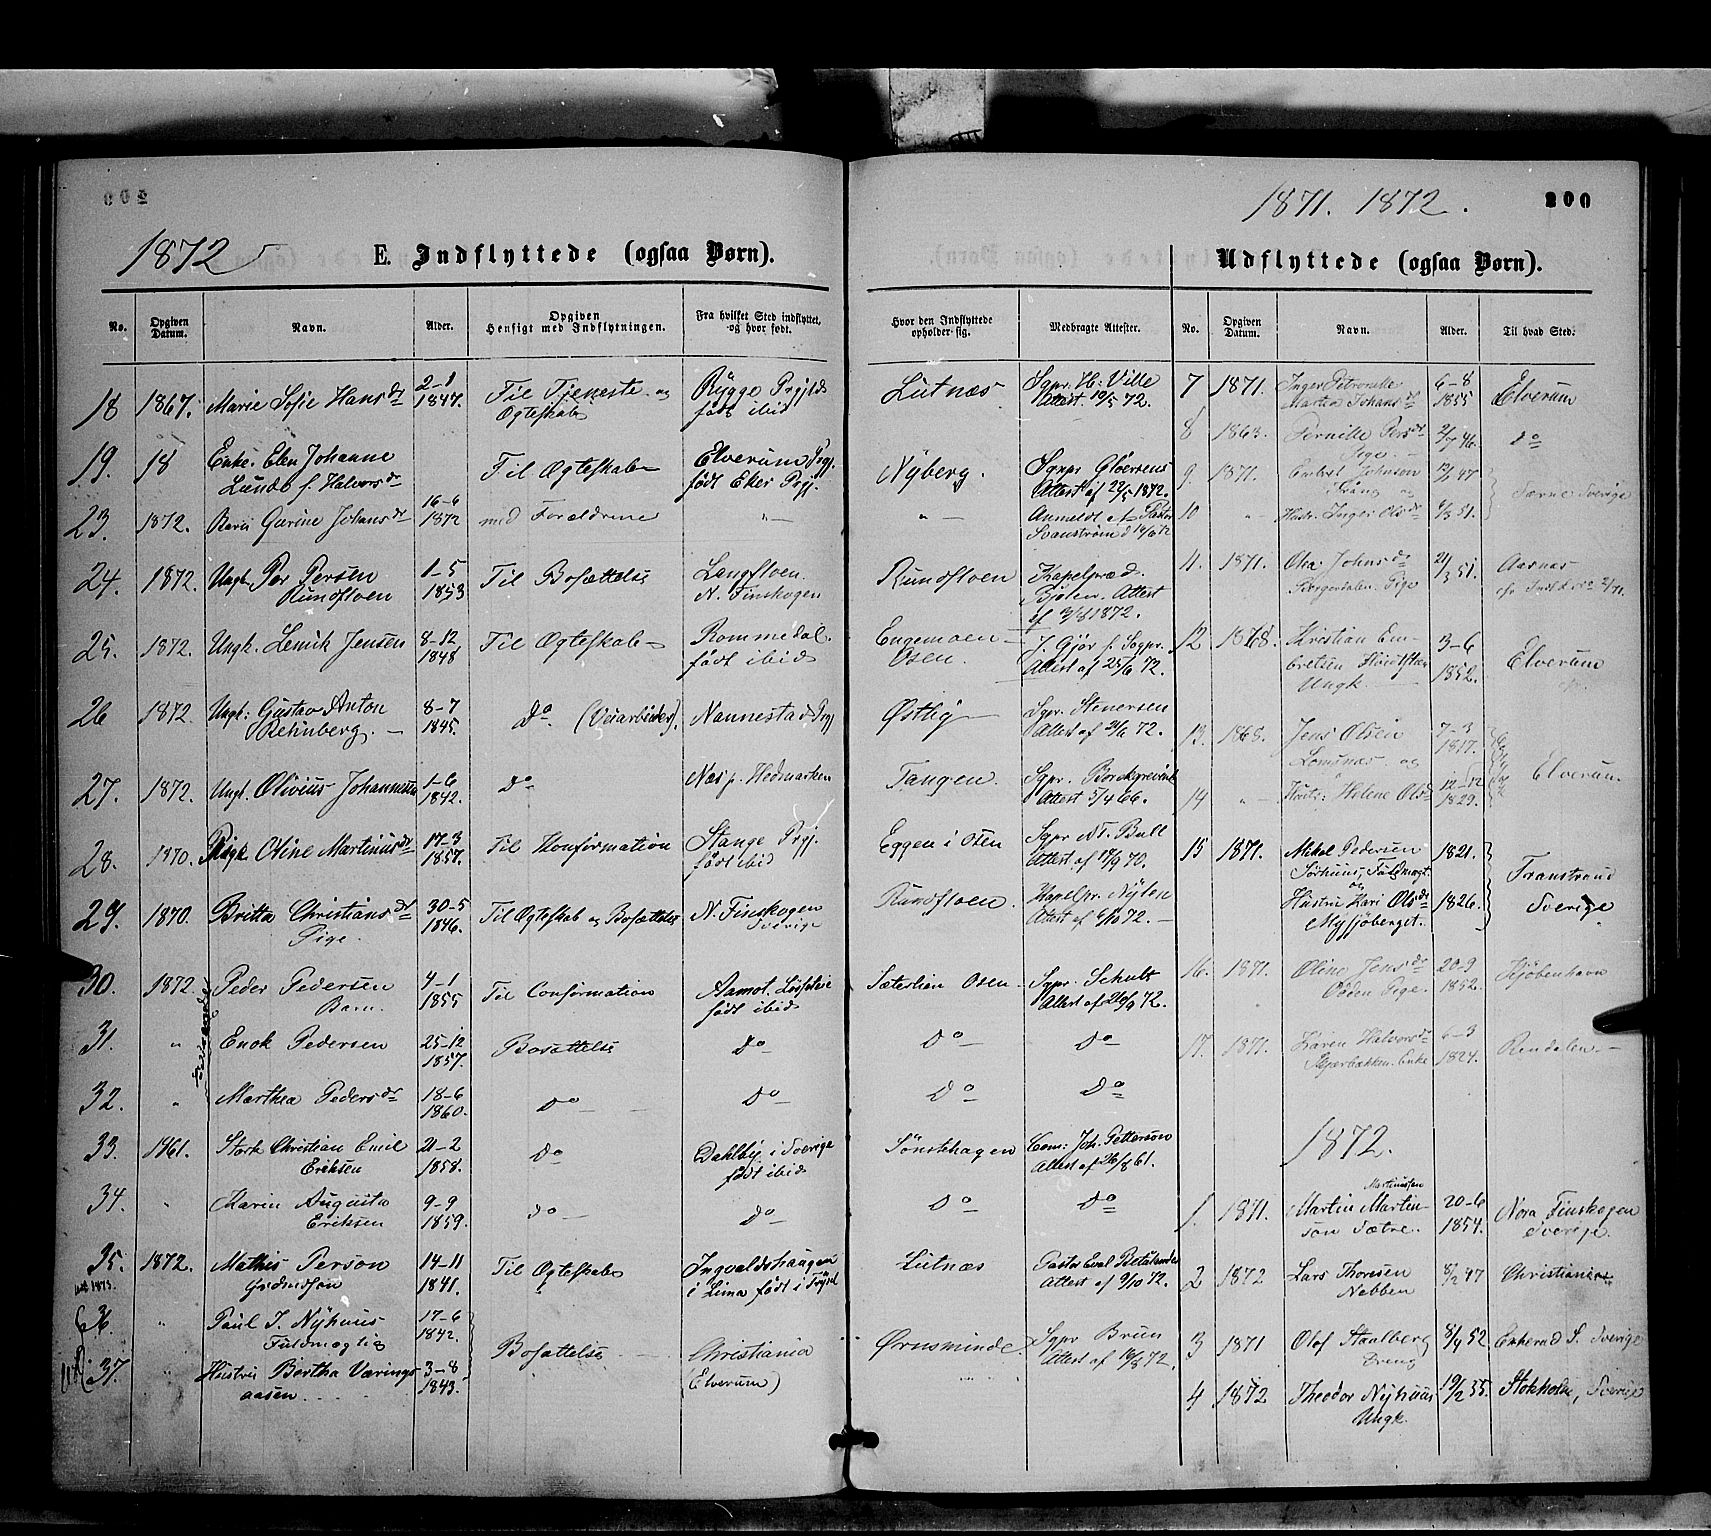 1871. 1872.
200
1872
E. Indflyttede (ogsaa Børn).
Udflyttede (ogsaa Børn).
No.
Opgiven Datum.
Navn.
Alder.
Opgiven Hensigt med Indflytningen.
Fra hvilket Sted indflyttet, og hvor født.
Hvor den Indflyttede opholder sig.
Medbragte Attester.
No.
Opgiven Datum.
Navn.
Alder.
Til hvad Sted.
18 1867. Marie Sofie Hansdr 2-1 1847. Til Tjeneste og Rygge Prgjld Lutnæs Sgpr. H. Ville
Ægteskab født ibid Attest 10/5 72.
19. 18 Enke Elen Johanne Til Ægteskab Elverum Prgj. Nyberg.
Lunde f. Halvorsdr født Eker Prgj. Attest af 22/5 1872.
23. 1872. Karen Gurine Johansdr 16-6 1872 med Forældrene " " Anmeldt af
24. 1872. Ungk. Per Persen 1-5 1853 Til Bosættelse Langfloen. Rundfloen Kapelpræd.
Rundfloen N. Finskogen Attest
af 13/8 1872.
25. 1872. Ungk. Lenik Jensen 8-12 1848 Til Ægteskab Rommedal. Engemoen J. Gjør f. Sogpr.
født ibid Osen. Attest af 25/6 72.
26 1872. Ungk. Gustav Anton 8-7 1845. Do (Veiarbeider). Nannestad Prgj Østby Sgpr. Stenersen
Rehnberg. Attest af 21/6 72.
27. 1872. Ungk. Olivius Johannesen 1-6 1842. Do Næs p. Hedmarken Tangen. Sgpr. Borchgrevink
Attest 5/4 66.
28. 1870. Pige Oline Martinusdr 17-3 1857. Til Konfirmation Stange Prgj. Eggen i Osen Sgpr N. T. Bull
født ibid Attest af 17/9 70.
29. 1870. Britta Christiansdr 30-5 1846. Til Ægteskab og Bosættelse N. Finskogen Rundfloen. Kapelpr. Nylen
Pige. Sverige Attest af 6/10 72.
30. 1872. Peder Pedersen 4-1 1855 Til Confirmation Aamot. Sæterlien Osen Sgpr. Schult
Barn. født ibid Attest af 20/9 72.
31. " Enok Pedersen 25-12 1857. Bosættelse Do Do Do
32. " Marthea Pedersdr 18-6 1860. Do Do Do Do
33. 1861. Christian Emil 21-2 1858. Do Dahlby i Sverige Sönstehagen Com: Joh. Petterson
Eriksen født ibid Attest af 26/8 61.
34. " Karin Augusta 9-9 1859. Do Do Do Do
Eriksen
35. 1872. Mathis Person 14-11 1841. Til Ægteskab Ingvaldshaagen Lutnæs Pastor
i Lima født i Trysil Attest af 9/10 72.
36. " Paul J. Nyhuus 17-6 1842.
Fuldmægtig Bosættelse Christiania Ørnsminde Sgpr Bruun
37. Hustru Bertha Værings- 3-8 1843. (Elverum) Attest af 16/3 72.
aasen
7 1871. Inger Petronelle 6-8 1855 Elverum
Martea Johansdr
8 1863. Pernille Persdr 2/7 46. Do
Pige
9. 1871. Embret Johnsen 47 Særne Sverige
og
10 " Hustr. Inger Olsdr 6/3 51.
11. 1871. Oha. Johnsdr 21/3 51. Aasnæs
Pige
12. 1868. Kristian Em- 3-6 1852. Elverum
bretsen
Ungk.
13. 1868. Jens Olsen 7-3 1817. Elverum
Lomsnæs og
14 " Hustr: Helene Olsdr 12-12 1829.
15 1871. Mikel Pedersen 1821. Transtrand
Sørhuus, Fuldmægt.
og
Hustru Kari Olsdr 1826. Sverige
Mysjøberget.
16. 1871. Oline Jensdr 20-9 1852. Kjøbenhavn
Pige.
17. 1871. Karen Halvorsdr 6-3 1824. Rendalen
Skjærbækken. Enke
1872.
1. 1871. Martin Martin- Martinussen 20-6 1854. Nora Finskogen
son Sætre. Sverige.
2 1872 Lars Thoresen 8/2 47 Christiania
Nebben
3 1871 Olof Staalberg 8/9 52 Sverige
Dreng
4 1872 Theodor Nyhuus 19/2 55. Stokholm, Sverige
Ungk.